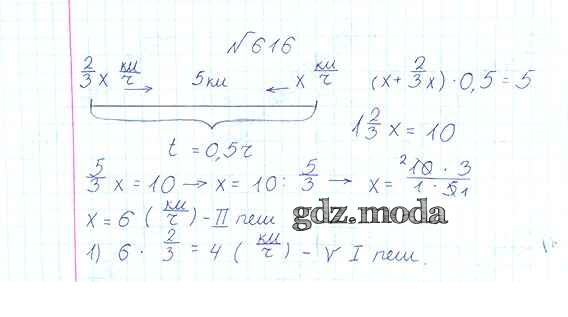 №616
2/3 x км/ч 5км x км/ч (x + 2/3 x) · 0,5 = 5
t = 0,5ч 1 2/3 x = 10
5/3 x = 10 → x = 10 : 5/3 → x = ²10 · 3 / 1 · 5₁
x = 6 (км/ч) – II пеш gdz.moda
1) 6 · 2/3 = 4 (км/ч) – v I пеш.